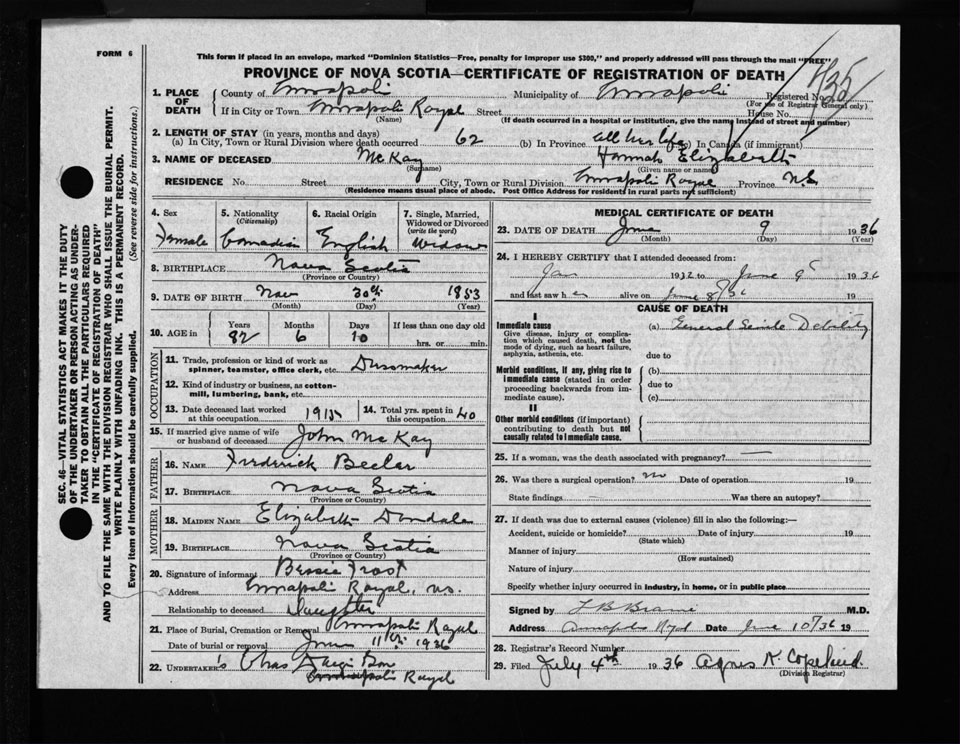 FORM 6
This form if placed in an envelope, marked "Dominion Statistics—Free, penalty for improper use $300," and properly addressed will pass through the mail "FREE"
PROVINCE OF NOVA SCOTIA—CERTIFICATE OF REGISTRATION OF DEATH
1. PLACE OF DEATH
County of Annapolis Municipality of Annapolis Registered No. 435
(For use of Registrar General only)
If in City or Town Annapolis Royal Street House No.
(Name) (If death occurred in a hospital or institution, give the name instead of street and number)
2. LENGTH OF STAY (in years, months and days)
(a) In City, Town or Rural Division where death occurred 62 (b) In Province all her life (c) In Canada (if immigrant)
3. NAME OF DECEASED McKay Hannah Elizabeth
(Surname) (Given name or names)
RESIDENCE No. Street City, Town or Rural Division Annapolis Royal Province N.S.
(Residence means usual place of abode. Post Office Address for residents in rural parts not sufficient)
4. Sex 5. Nationality (Citizenship) 6. Racial Origin 7. Single, Married, Widowed or Divorced (write the word)
Female Canadian English Widow
8. BIRTHPLACE Nova Scotia
(Province or Country)
9. DATE OF BIRTH Nov 30th 1853
(Month) (Day) (Year)
10. AGE in Years Months Days If less than one day old
82 6 10 hrs. or min.
OCCUPATION
11. Trade, profession or kind of work as spinner, teamster, office clerk, etc. Dressmaker
12. Kind of industry or business, as cotton-mill, lumbering, bank, etc.
13. Date deceased last worked at this occupation 1915 14. Total yrs. spent in this occupation 40
15. If married give name of wife or husband of deceased John McKay
FATHER
16. NAME Frederick Beeler
17. BIRTHPLACE Nova Scotia
(Province or Country)
MOTHER
18. MAIDEN NAME Elizabeth
19. BIRTHPLACE Nova Scotia
(Province or Country)
20. Signature of informant Bessie Frost
Address Annapolis Royal, N.S.
Relationship to deceased Daughter
21. Place of Burial, Cremation or Removal Annapolis Royal
Date of burial or removal June 11th 1936
22. UNDERTAKER'S Chas
Annapolis Royal
MEDICAL CERTIFICATE OF DEATH
23. DATE OF DEATH June 9 1936
(Month) (Day) (Year)
24. I HEREBY CERTIFY that I attended deceased from:
Jan 1932 to June 9 1936
and last saw her alive on June 8/36 19
CAUSE OF DEATH
I
Immediate cause
Give disease, injury or complication which caused death, not the mode of dying, such as heart failure, asphyxia, asthenia, etc.
(a) General Senile Debility
due to
Morbid conditions, if any, giving rise to immediate cause (stated in order proceeding backwards from immediate cause).
(b)
due to
(c)
II
Other morbid conditions (if important) contributing to death but not causally related to immediate cause.
25. If a woman, was the death associated with pregnancy? —
26. Was there a surgical operation? no Date of operation 19
State findings — Was there an autopsy?
27. If death was due to external causes (violence) fill in also the following:—
Accident, suicide or homicide? Date of injury 19
(State which)
Manner of injury
(How sustained)
Nature of injury
Specify whether injury occurred in industry, in home, or in public place
Signed by M.D.
Address Annapolis Royal Date June 10/36 19
28. Registrar's Record Number
29. Filed July 4th 1936 Agnes K. Copeland
(Division Registrar)
SEC. 46—VITAL STATISTICS ACT MAKES IT THE DUTY
OF THE UNDERTAKER OR PERSON ACTING AS UNDER-
TAKER TO OBTAIN ALL THE PARTICULARS REQUIRED
IN THE "CERTIFICATE OF REGISTRATION OF DEATH"
AND TO FILE THE SAME WITH THE DIVISION REGISTRAR WHO SHALL ISSUE THE BURIAL PERMIT.
WRITE PLAINLY WITH UNFADING INK. THIS IS A PERMANENT RECORD.
Every item of information should be carefully supplied. (See reverse side for instructions.)